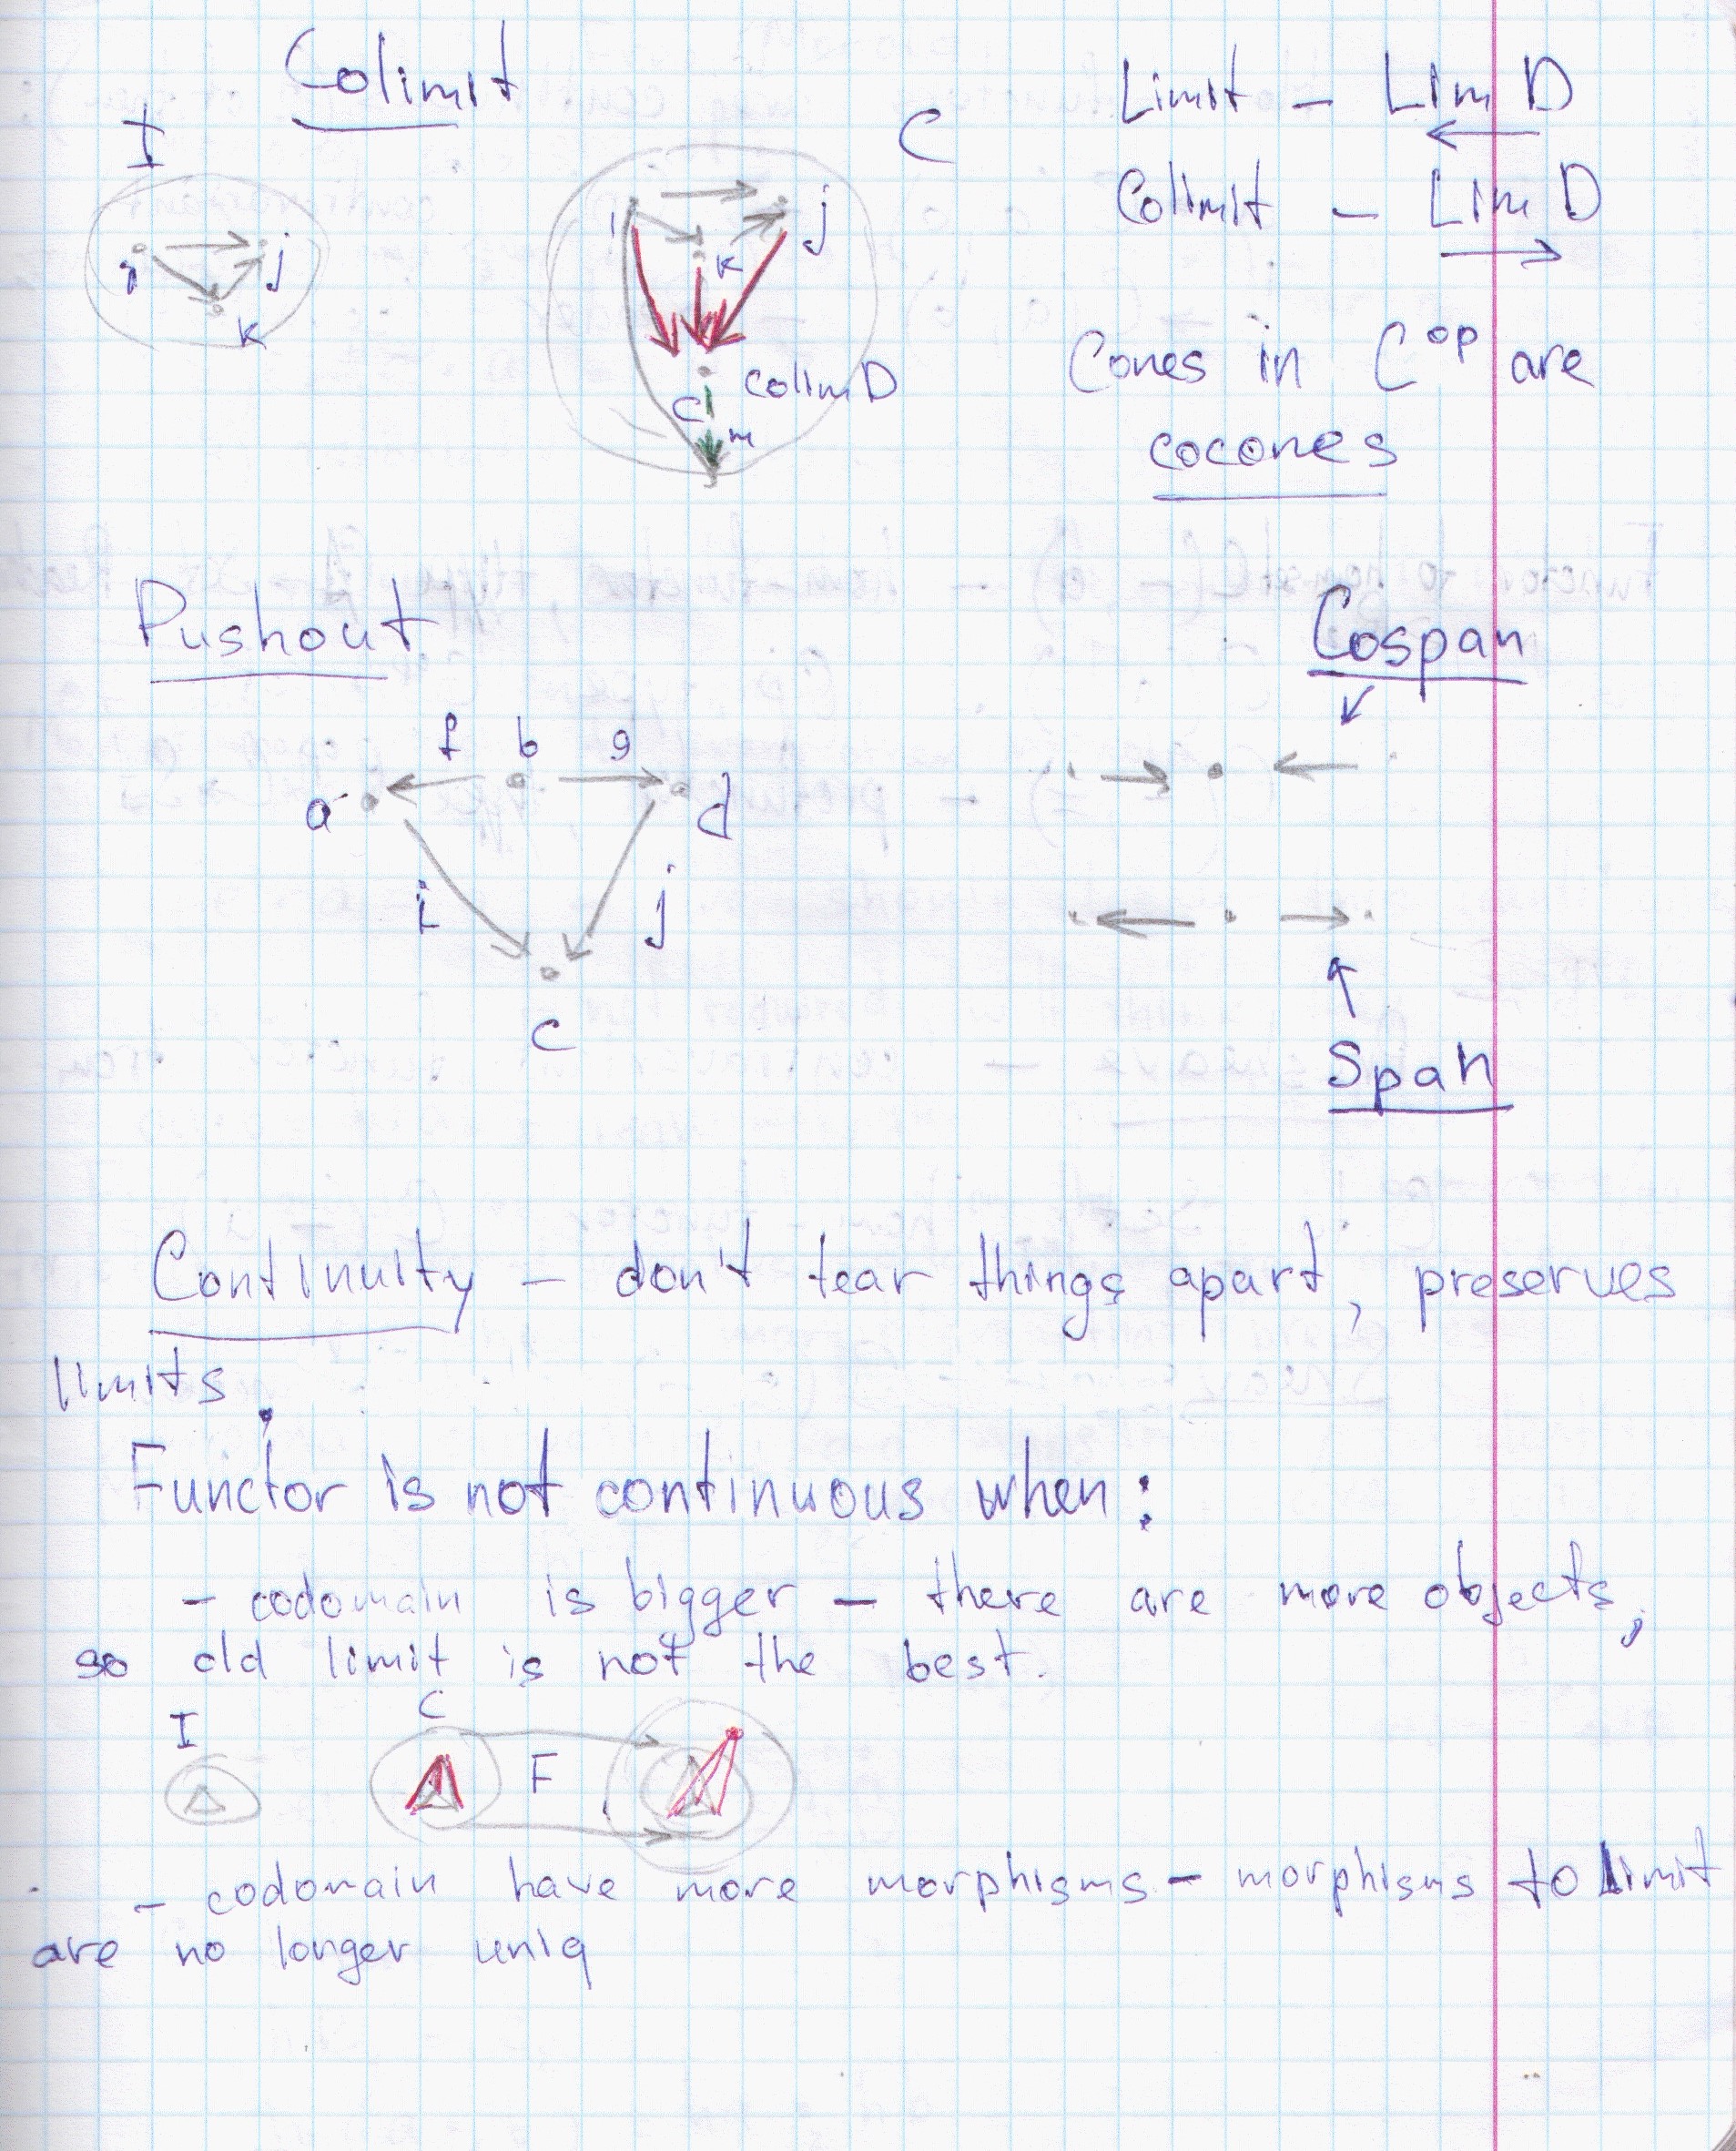 Colimit
I
i
j
k
C
i
j
k
colim D
c
m
Limit – Lim D
Colimit – Lim D
Cones in C^op are
cocones
Pushout
f b g
a
d
i
j
c
Cospan
Span
Continuity – don't tear things apart, preserves
limits.
Functor is not continuous when:
- codomain is bigger – there are more objects,
so old limit is not the best.
I
C
F
- codomain have more morphisms – morphisms to limit
are no longer uniq